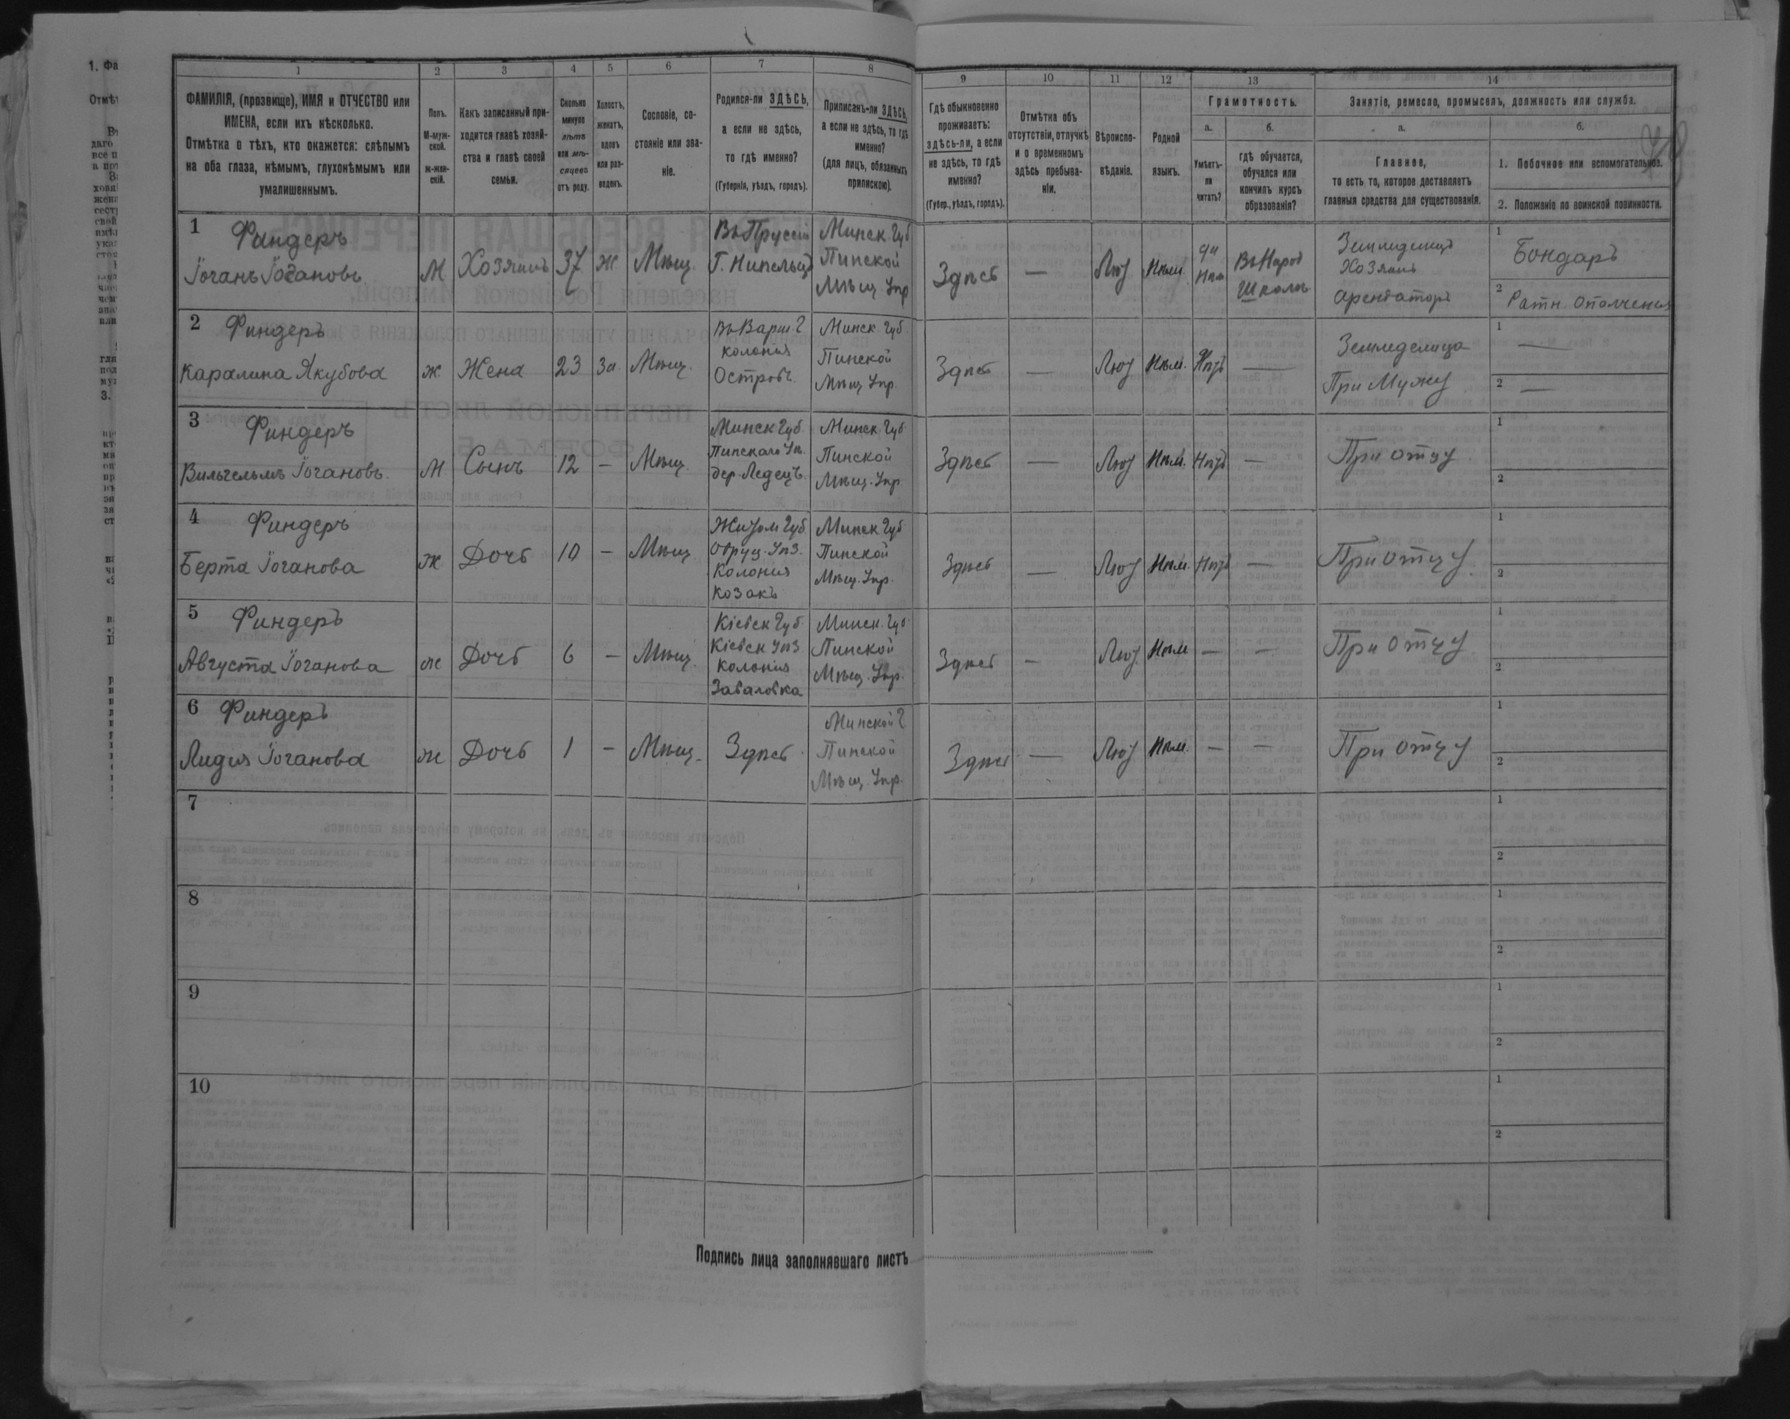 1 2 3 4 5 6 7 8 9 10 11 12 13 14
ФАМИЛІЯ, (прозвище), ИМЯ и ОТЧЕСТВО или
ИМЕНА, если ихъ нѣсколько.
Отмѣтка о тѣхъ, кто окажется: слѣпымъ
на оба глаза, нѣмымъ, глухонѣмымъ или
умалишеннымъ.
Полъ.
М-муж-
ской.
Ж-жен-
скій.
Какъ записанный при-
ходится главѣ хозяй-
ства и главѣ своей
семьи.
Сколько
минуло
лѣтъ
или мѣ-
сяцевъ
отъ роду.
Холостъ,
женатъ,
вдовъ
или раз-
веденъ.
Сословіе, со-
стояніе или зва-
ніе.
Родился-ли ЗДѢСЬ,
а если не здѣсь,
то гдѣ именно?
(Губернія, уѣздъ, городъ).
Приписанъ-ли ЗДѢСЬ,
а если не здѣсь, то гдѣ
именно?
(для лицъ, обязанныхъ
припискою).
Гдѣ обыкновенно
проживаетъ:
здѣсь-ли, а если
не здѣсь, то гдѣ
именно?
(Губер., уѣздъ, городъ).
Отмѣтка объ
отсутствіи, отлучкѣ
и о временномъ
здѣсь пребыва-
ніи.
Вѣроиспо-
вѣданіе.
Родной
языкъ.
Грамотность.
а.
Умѣетъ-
ли
читать?
б.
гдѣ обучается,
обучался или
кончилъ курсъ
образованія?
Занятіе, ремесло, промыселъ, должность или служба.
а.
Главное,
то есть то, которое доставляетъ
главныя средства для существованія.
б.
1. Побочное или вспомогательное.
2. Положеніе по воинской повинности.
1 Финдеръ
Іоганъ Іогановъ М Хозяинъ 37 Ж Мѣщ.
Въ Пруссіи
Минск Губ
Пинской
Мѣщ Упр
Здѣсь — Лют Нѣм.
Въ Народ
Школѣ
Хозяинъ
арендаторъ
1 Бондарь
2 Ратн. ополченія
2 Финдеръ
Каралина Якубова ж. Жена 23 За. Мѣщ.
Въ Варш г
колонія
Островъ
Минск Губ
Пинской
Мѣщ Упр.
Здѣсь — Лют Нѣм. —
Земледелица
При Мужу
1 —
2 —
3 Финдеръ
Вильгельмъ Іогановъ. М Сынъ 12 — Мѣщ.
Минск Губ.
Пинскаго Уѣ.
дер. Ледецъ
Минск. Губ
Пинской
Мѣщ. Упр.
Здѣсь — Лют Нѣм. —
При отцу
1
2
4 Финдеръ
Берта Іоганова ж Дочь 10 — Мѣщ
Житом Губ
Овруц. Уѣз.
Колонія
Козакъ
Минск Губ
Пинской
Мѣщ. Упр.
Здѣсь — Лют Нѣм. —
При отцу
1
2
5 Финдеръ
Августа Іоганова ж Дочь 6 — Мѣщ.
Кіевск Губ
Кіевск Уѣз
колонія
Заваловка
Минск. Губ
Пинской
Мѣщ. Упр.
Здѣсь — Лют. Нѣм — —
При отцу
1
2
6 Финдеръ
Лидия Іоганова ж Дочь 1 — Мѣщ. Здѣсь
Минской г
Пинской
Мѣщ. Упр.
Здѣсь — Лют Нѣм. — —
При отцу
1
2
7
1
2
8
1
2
9
1
2
10
1
2
Подпись лица заполнявшаго листъ